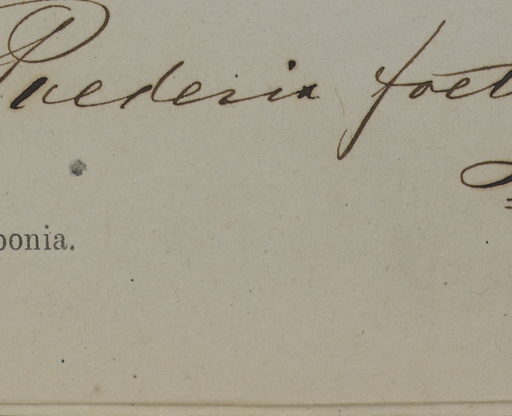 Paederia foet
ponia.